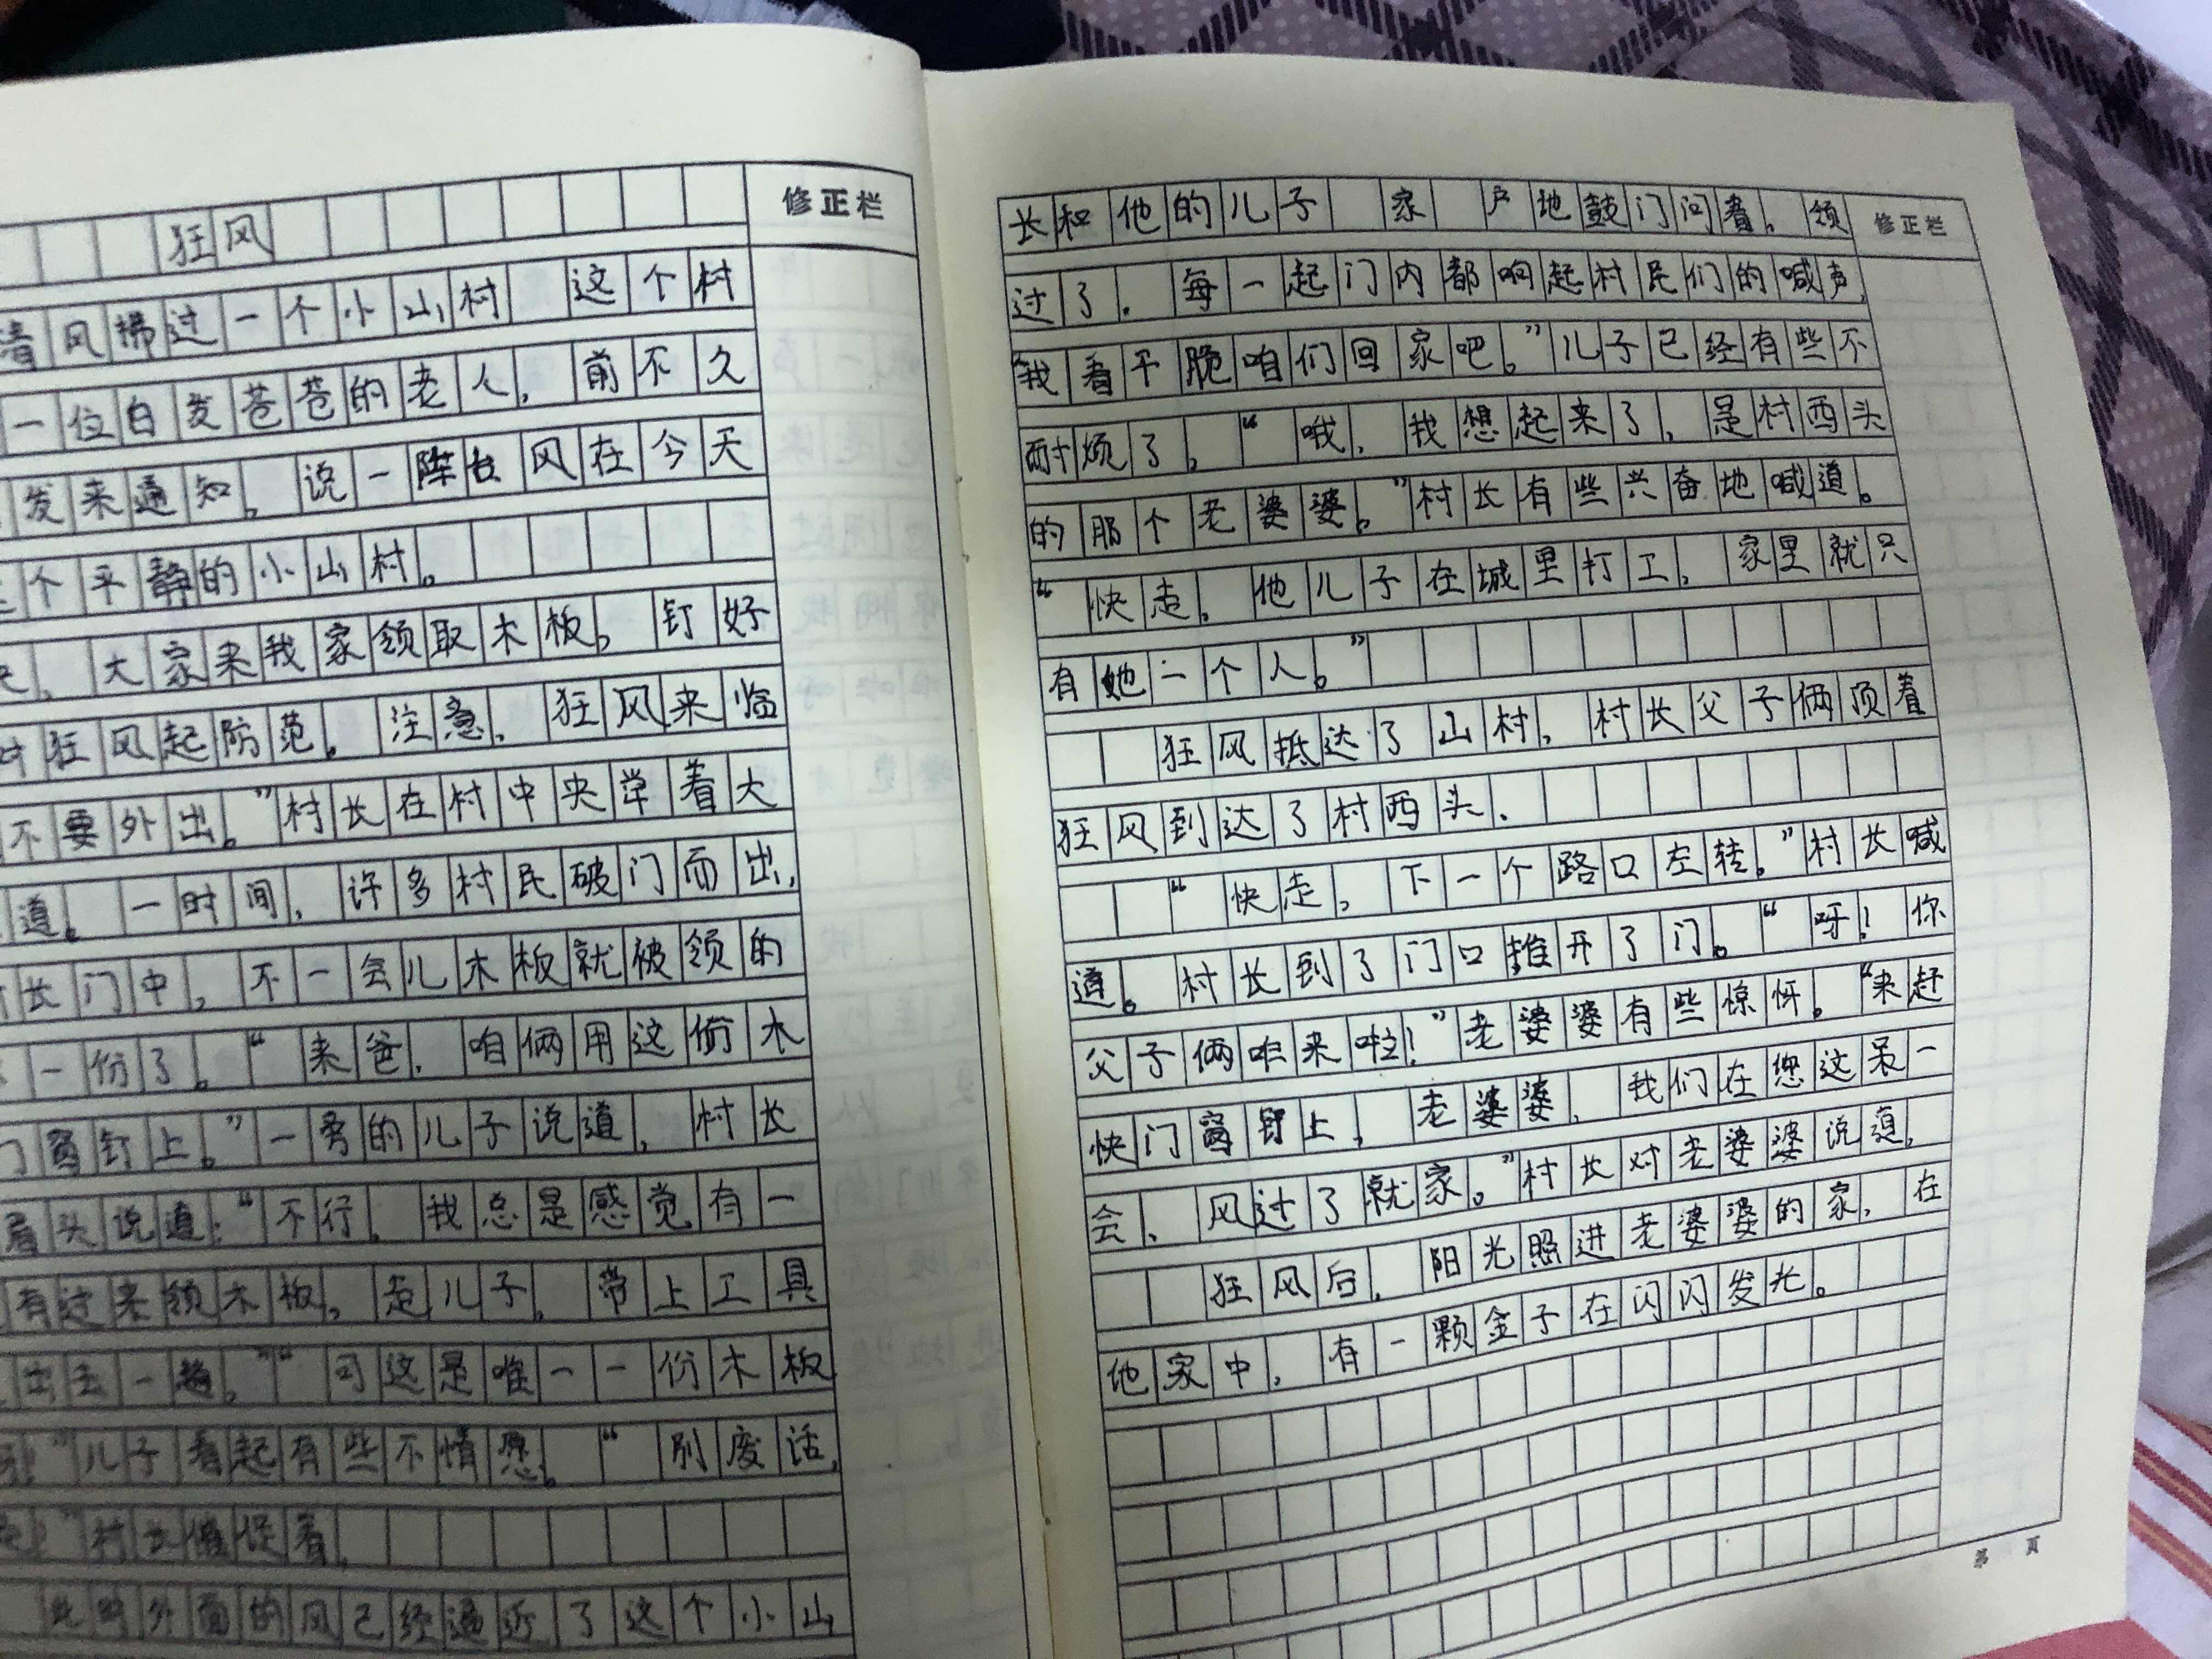 狂风
修正栏
清风拂过一个小山村 这个村
一位白发苍苍的老人，前不久
发来通知。说一阵台风在今天
个平静的小山村。
大家来我家领取木板。钉好
对狂风起防范。注意、狂风来临
不要外出。”村长在村中央掌着大
道。一时间，许多村民破门而出，
长门中，不一会儿木板就被领的
一份了。“来爸，咱俩用这份木
门窗钉上。”一旁的儿子说道，村长
眉头说道：“不行，我总是感觉有一
有过来领木板。走儿子，带上工具
出去一趟。”“可这是唯一一份木板
”儿子看起有些不情愿。“别废话，
”村长催促着。
此时外面的风已经逼近了这个小山
修正栏
长和他的儿子 家 户地鼓门问着。领
过了。每一起门内都响起村民们的喊声，
“我看干脆咱们回家吧。”儿子已经有些不
耐烦了，“哦，我想起来了，是村西头
的那个老婆婆。”村长有些兴奋地喊道。
“快走，他儿子在城里打工，家里就只
有她一个人。”
狂风抵达了山村，村长父子俩顶着
狂风到达了村西头.
“快走，下一个路口左转。”村长喊
道。村长到了门口推开了门。“呀！你
父子俩咋来啦！”老婆婆有些惊怀。“来赶
快门窗钉上，老婆婆，我们在您这呆一
会、风过了就家。”村长对老婆婆说道，
狂风后，阳光照进老婆婆的家，在
他家中，有一颗金子在闪闪发光。
第 页